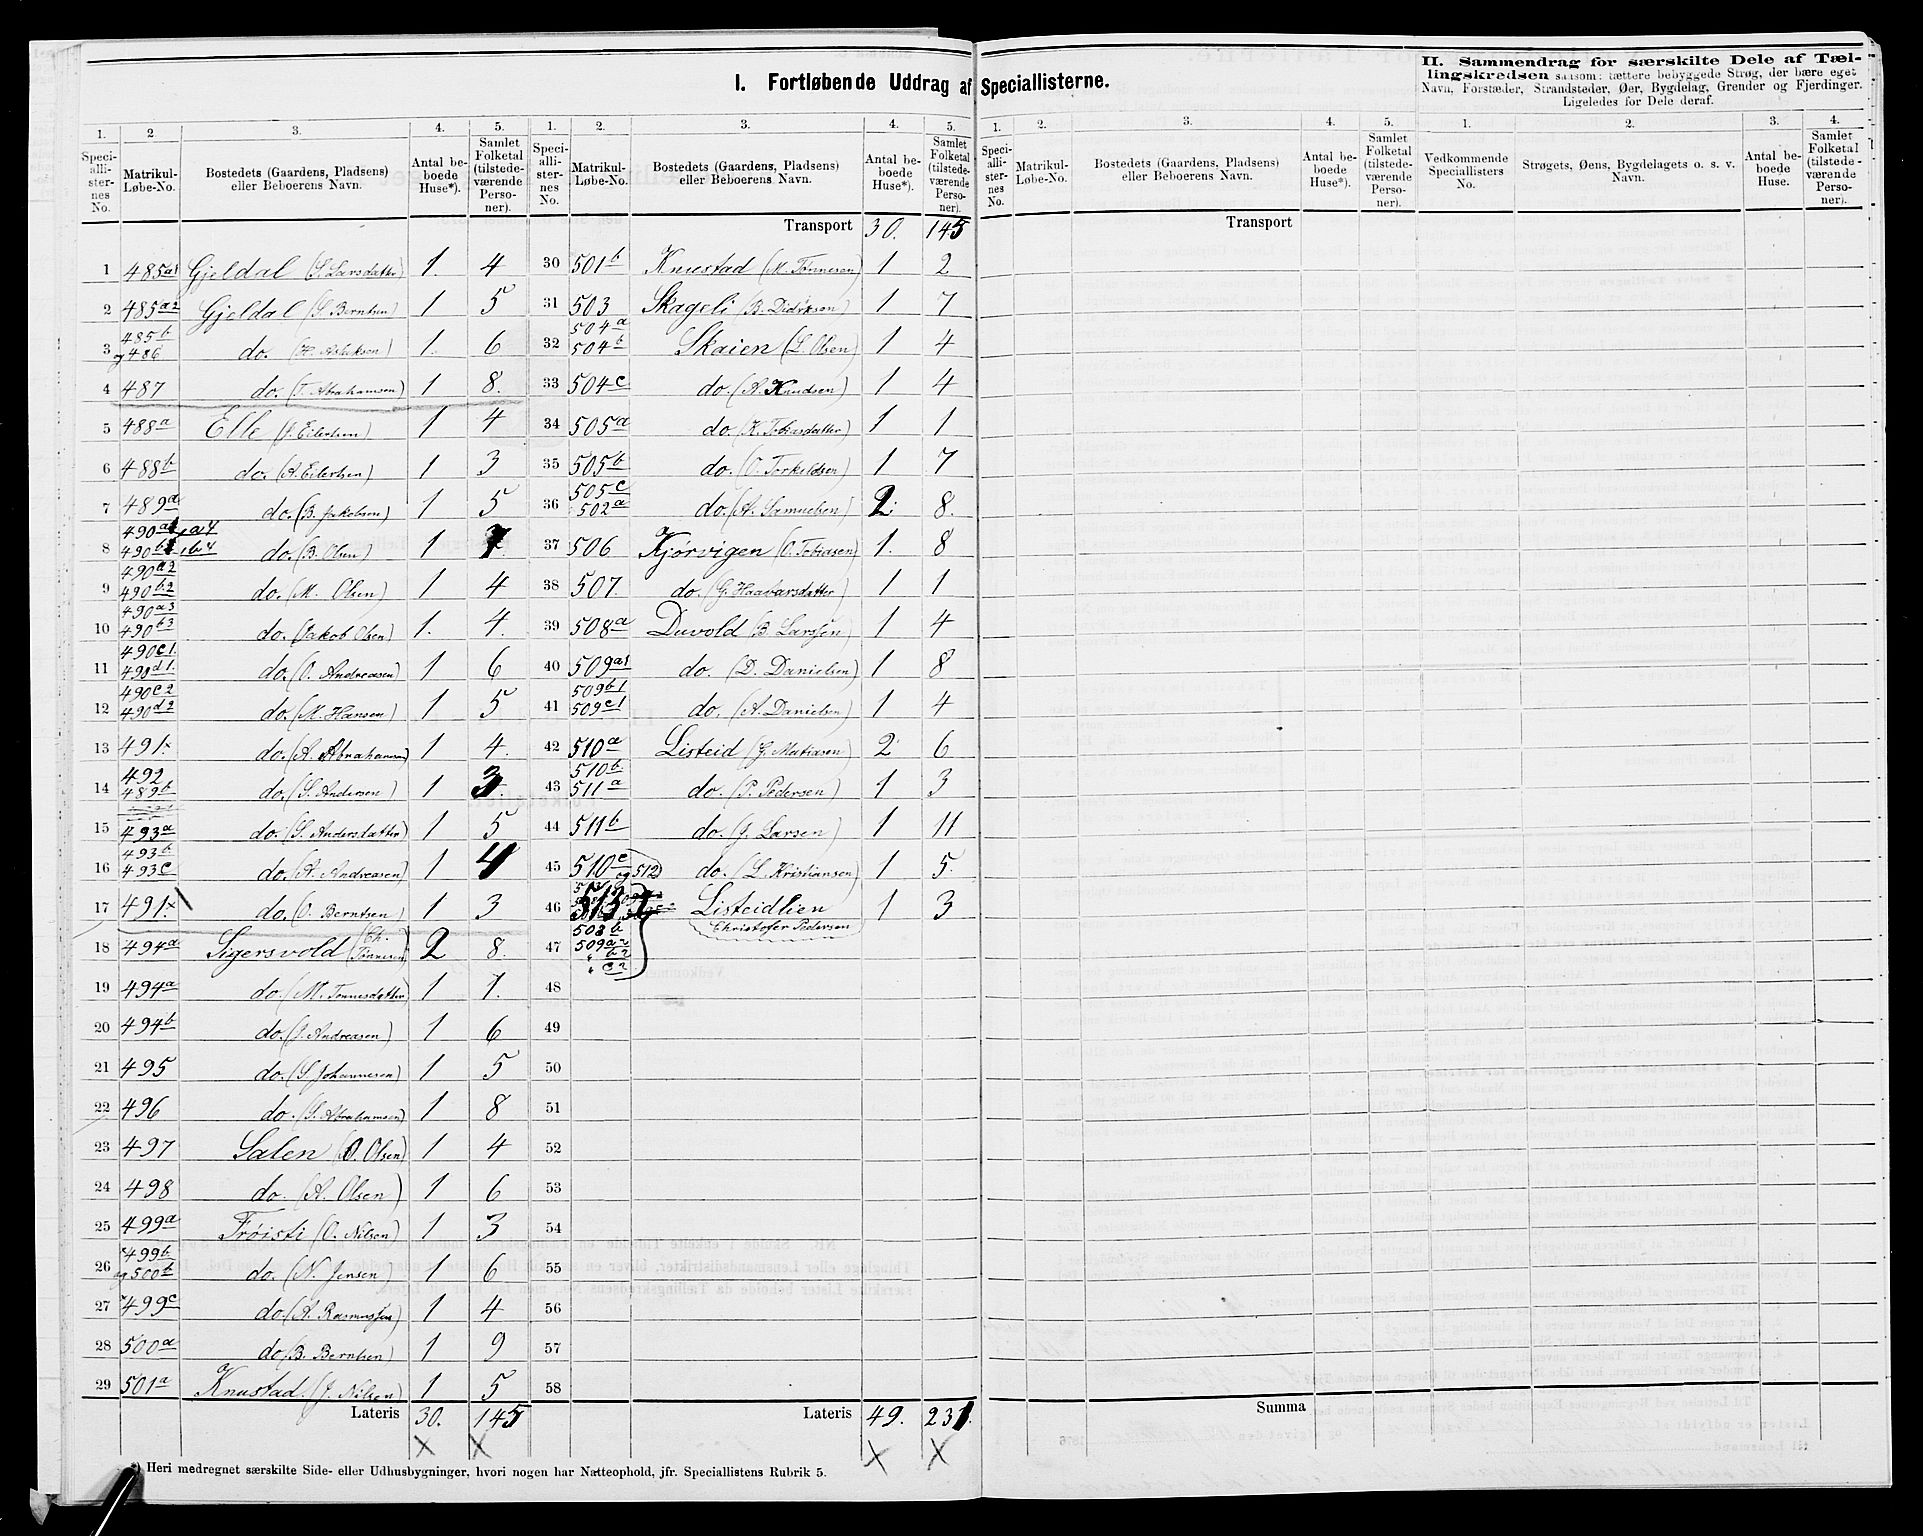 I. Fortløbende Uddrag af Speciallisterne.
II. Sammendrag for særskilte Dele af Tællingskredsen saasom: tættere bebyggede Strøg, der bære eget
Navn, Forstæder, Strandsteder, Øer, Bygdelag, Grender og Fjerdinger.
Ligeledes for Dele deraf.
1. 2. 3. 4. 5. 1. 2. 3. 4. 5. 1. 2. 3. 4. 5. 1. 2. 3. 4.
Speciallisternes No. Matrikul-Løbe-No. Bostedets (Gaardens, Pladsens) eller Beboerens Navn. Antal beboede Huse*). Samlet Folketal (tilstedeværende Personer).
Speciallisternes No. Matrikul-Løbe-No. Bostedets (Gaardens, Pladsens) eller Beboerens Navn. Antal beboede Huse*). Samlet Folketal (tilstedeværende Personer).
Speciallisternes No. Matrikul-Løbe-No. Bostedets (Gaardens, Pladsens) eller Beboerens Navn. Antal beboede Huse*) Samlet Folketal (tilstedeværende Personer).
Vedkommende Speciallisters No. Strøgets, Øens, Bygdelagets o. s. v. Navn. Antal beboede Huse. Samlet Folketal (tilstedeværende Personer).
1 485a1 Gjeldal (S. Larsdatter) 1. 4
2 485a2 Gjeldal (S. Berntsen) 1 5
3 485b og 486 do. (H. Aslaksen) 1. 6
4 487 do. (T. Abrahamsen) 1 8.
5 488a Elle (J. Eilertsen) 1 4
6 488b do. (A. Eilertsen) 1 3
7 489a do. (B. Jakobsen) 1 5
8 490a1, a4 490b1, b4 do. (B. Olsen) 1 7
9 490a2 490b2 do. (M. Olsen) 1 4
10 490a3 490b3 do. (Jakob Olsen) 1. 4.
11 490c1. 490d1. do. (O. Andreasen) 1 6
12 490c2 490d2 do. (M. Hansen) 1 5
13 491x do. (A. Abrahamsen) 1 4.
14 492 489b do. (S. Andersen) 1 3.
15 493a do. (S. Andersdatter) 1 5
16 493b 493c do. (A. Andreasen) 1 4
17 491x do. (O. Berntsen) 1 3
18 494a Sigersvold (Ch. Tønnesen) 2 8.
19 494a do. (M. Tønnesdatter) 1 1.
20 494b do. (J. Andreasen) 1 6
21 495 do. (S. Johannesen) 1 5
22 496 do. (S. Abrahamsen) 1 8
23 497 Salen (O. Olsen) 1 4
24 498 do. (A. Olsen) 1 6
25 499a Frøisti (O. Nilsen) 1 3
26 499b og 500b do. (N. Jensen) 1 6
27 499c do. (A. Rasmussen) 1 4
28 500a do. (B. Berntsen) 1 9
29 501a Knustad. (J. Nilsen) 1 5
Lateris 30. 145
Transport 30. 145
30 501b Knustad (M. Tønnesen) 1 2
31 503 Skageli (B. Didriksen) 1 7
32 504a 504b Skaien (L. Olsen) 1 4
33 504c do. (A. Knudsen) 1 4
34 505a do. (K. Tobiasdatter) 1 1
35 505b do. (O. Torkeldsen) 1 7
36 505c 502a do. (A. Samuelsen) 2. 8.
37 506 Kjørvigen (O. Tobiasen) 1. 8
38 507. do. (G. Haavarsdatter) 1 1
39 508a Duvold (B. Larssen) 1 4
40 509a1 do. (D. Danielsen) 1 8
41 509b1 509c1 do. (A. Danielsen) 1 4
42 510a Listeid (G. Matiasen) 2 6
43 510b. 511a do. (P. Pedersen) 1 3
44 511b do. (J. Larsen) 1 11
45 510c og 512 do. (L. Kristiansen) 1 5.
46 513 Listeidlien 1 3
Christofer Pedersen
47 508b 509a2 " b2 " c2
48
49
50
51
52
53
54
55
56
57
58
Lateris 49. 231.
Transport
Summa
*) Heri medregnet særskilte Side- eller Udhusbygninger, hvori nogen har Natteophold, jfr. Speciallistens Rubrik 5.